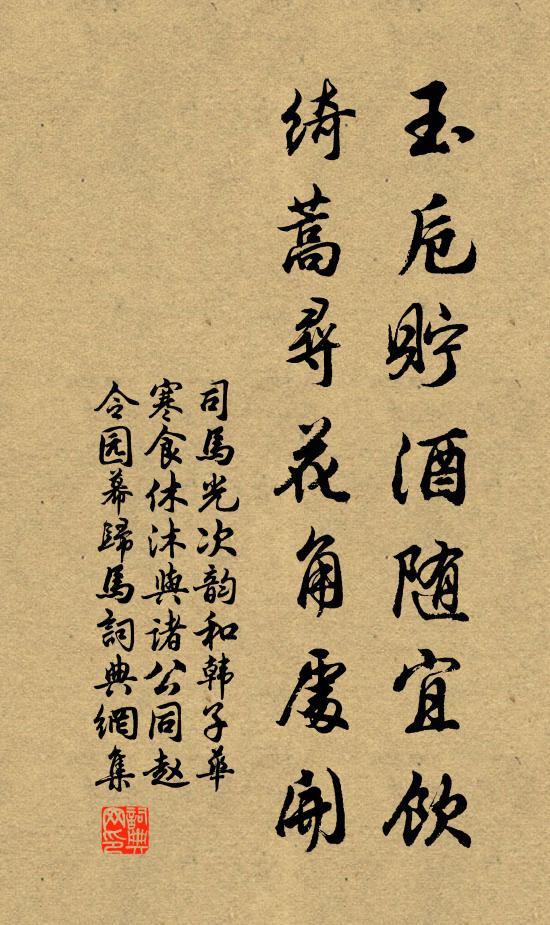 玉卮貯酒随宜飲
绮蒿尋花角處開
司馬光次韵和韩子華
寒食休沐與诸公同赵
令园暮歸馬詞典網集
詞典网印